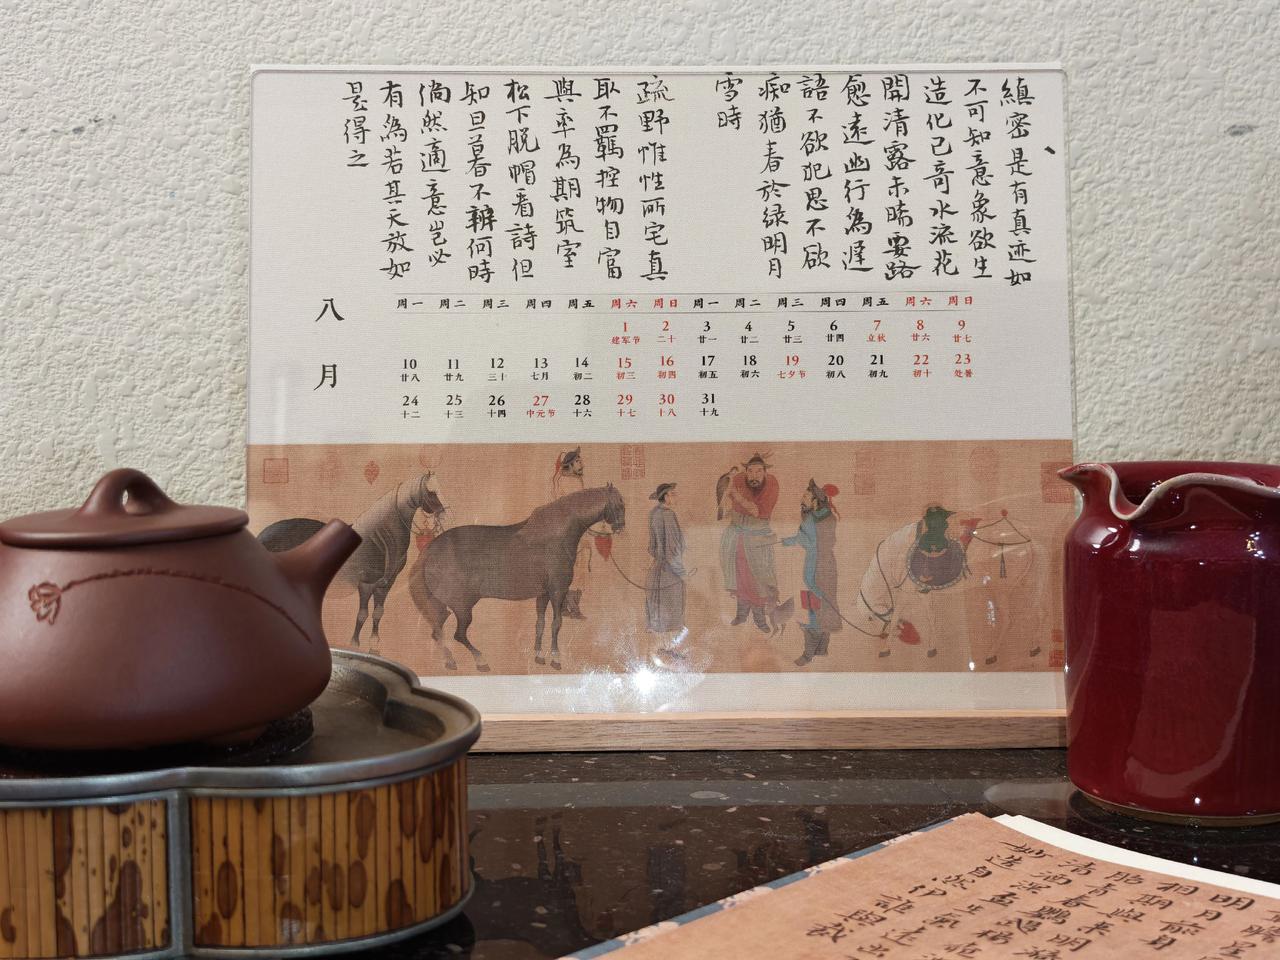 缜密是有真迹如
不可知意象欲生
造化已奇水流花
開清露未晞要路
愈遠幽行為遲
語不欲犯思不欲
痴猶春於绿明月
雪時
疏野惟性所宅真
取不羈控物自富
與率為期筑室
松下脱帽看詩但
知旦暮不辨何時
倘然適意豈必
有為若其天放如
是得之
八月
周一 周二 周三 周四 周五 周六 周日 周一 周二 周三 周四 周五 周六 周日
1 2 3 4 5 6 7 8 9
建军节 二十 廿一 廿二 廿三 廿四 立秋 廿六 廿七
10 11 12 13 14 15 16 17 18 19 20 21 22 23
廿八 廿九 三十 七月 初二 初三 初四 初五 初六 七夕节 初八 初九 初十 处暑
24 25 26 27 28 29 30 31
十二 十三 十四 中元节 十六 十七 十八 十九
明月
相期
胎青與
清酒春